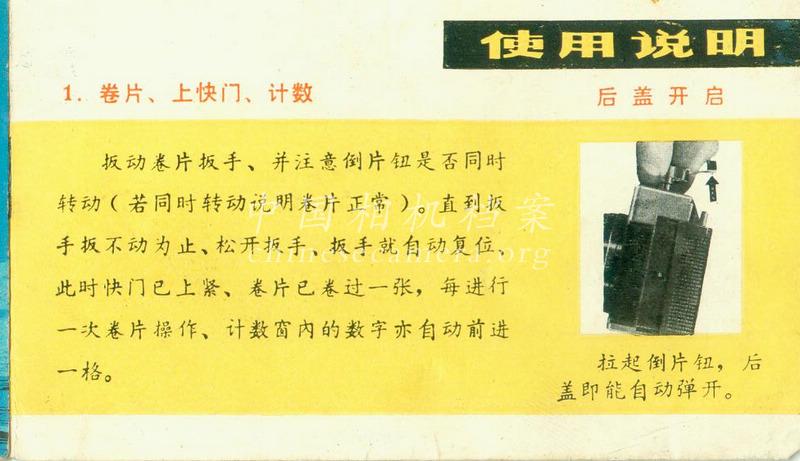 使用说明
1. 卷片、上快门、计数
扳动卷片扳手、并注意倒片钮是否同时
转动（若同时转动说明卷片正常）。直到扳
手扳不动为止、松开扳手、扳手就自动复位、
此时快门已上紧、卷片已卷过一张，每进行
一次卷片操作、计数窗内的数字亦自动前进
一格。
后盖开启
拉起倒片钮，后
盖即能自动弹开。
中国相机档案
chinesecamera.org